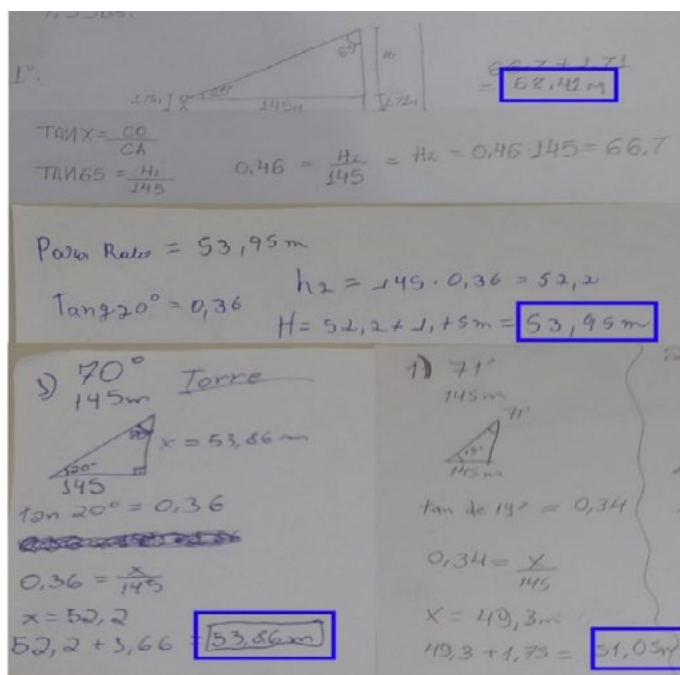 1º.
65
25º
H2
1.71m
145m
1.71m
66.7 + 1.71
= 68,41 m
TAN X = CO/CA
TAN 65 = H2/145
0.46 = H2/145 = H2 = 0.46 145 = 66.7
Para Raio = 53,95m
h2 = 145 . 0,36 = 52,2
Tang 20º = 0,36
H = 52,2 + 1,75m = 53,95m
3) 70º Torre
145m
x = 53,86m
20º
145
tan 20º = 0,36
0,36 = x/145
x = 52,2
52,2 + 1,66 = 53,86m
1) 71º
145m
71º
19º
145m
tan de 19º = 0,34
0,34 = x/145
X = 49,3m
49,3 + 1,75 = 51,05m